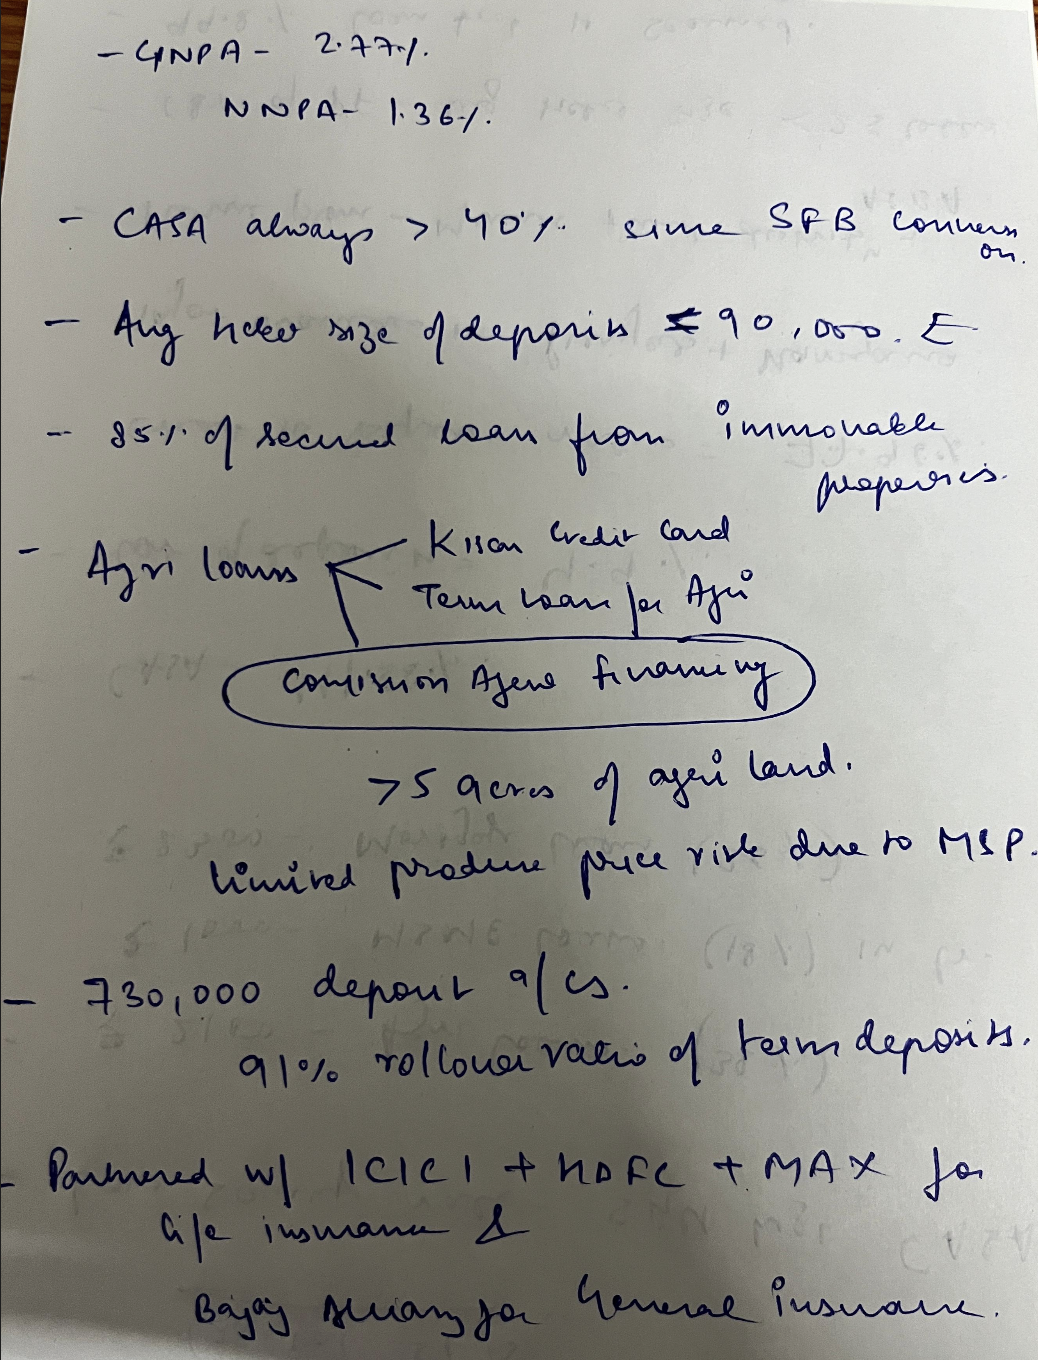 - GNPA - 2.77%.
NNPA - 1.36%.
- CASA always > 40%. since SFB conversion.
- Avg ticket size of deposits ≤ 90,000.
- 85% of secured loan from immovable
properties.
- Agri loans
Kisan Credit Card
Term loan for Agri
Commission Agent financing
>5 acres of agri land.
limited produce price risk due to MSP.
- 730,000 deposit a/cs.
91% rollover ratio of term deposits.
- Partnered w/ ICICI + HDFC + MAX for
life insurance &
Bajaj Allianz for General insurance.